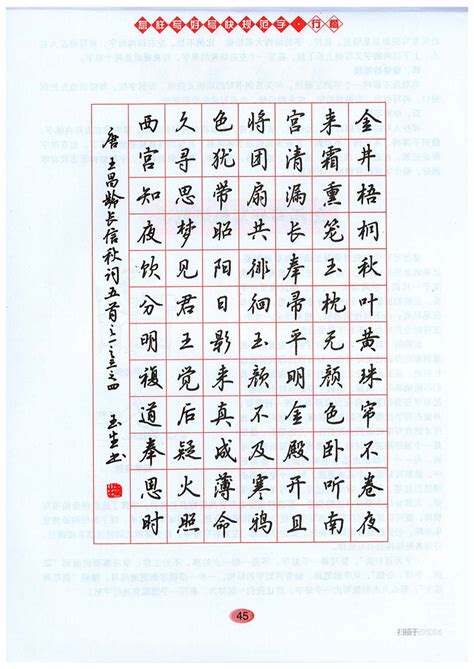 怎样写好写快规范字·行篇
金井梧桐秋叶黄珠帘不卷夜
来霜熏笼玉枕无颜色卧听南
宫清漏长奉帚平明金殿开且
将团扇共徘徊玉颜不及寒鸦
色犹带昭阳日影来真成薄命
久寻思梦见君王觉后疑火照
西宫知夜饮分明複道奉恩时
唐王昌龄长信秋词五首之 玉生书
45
扫描于